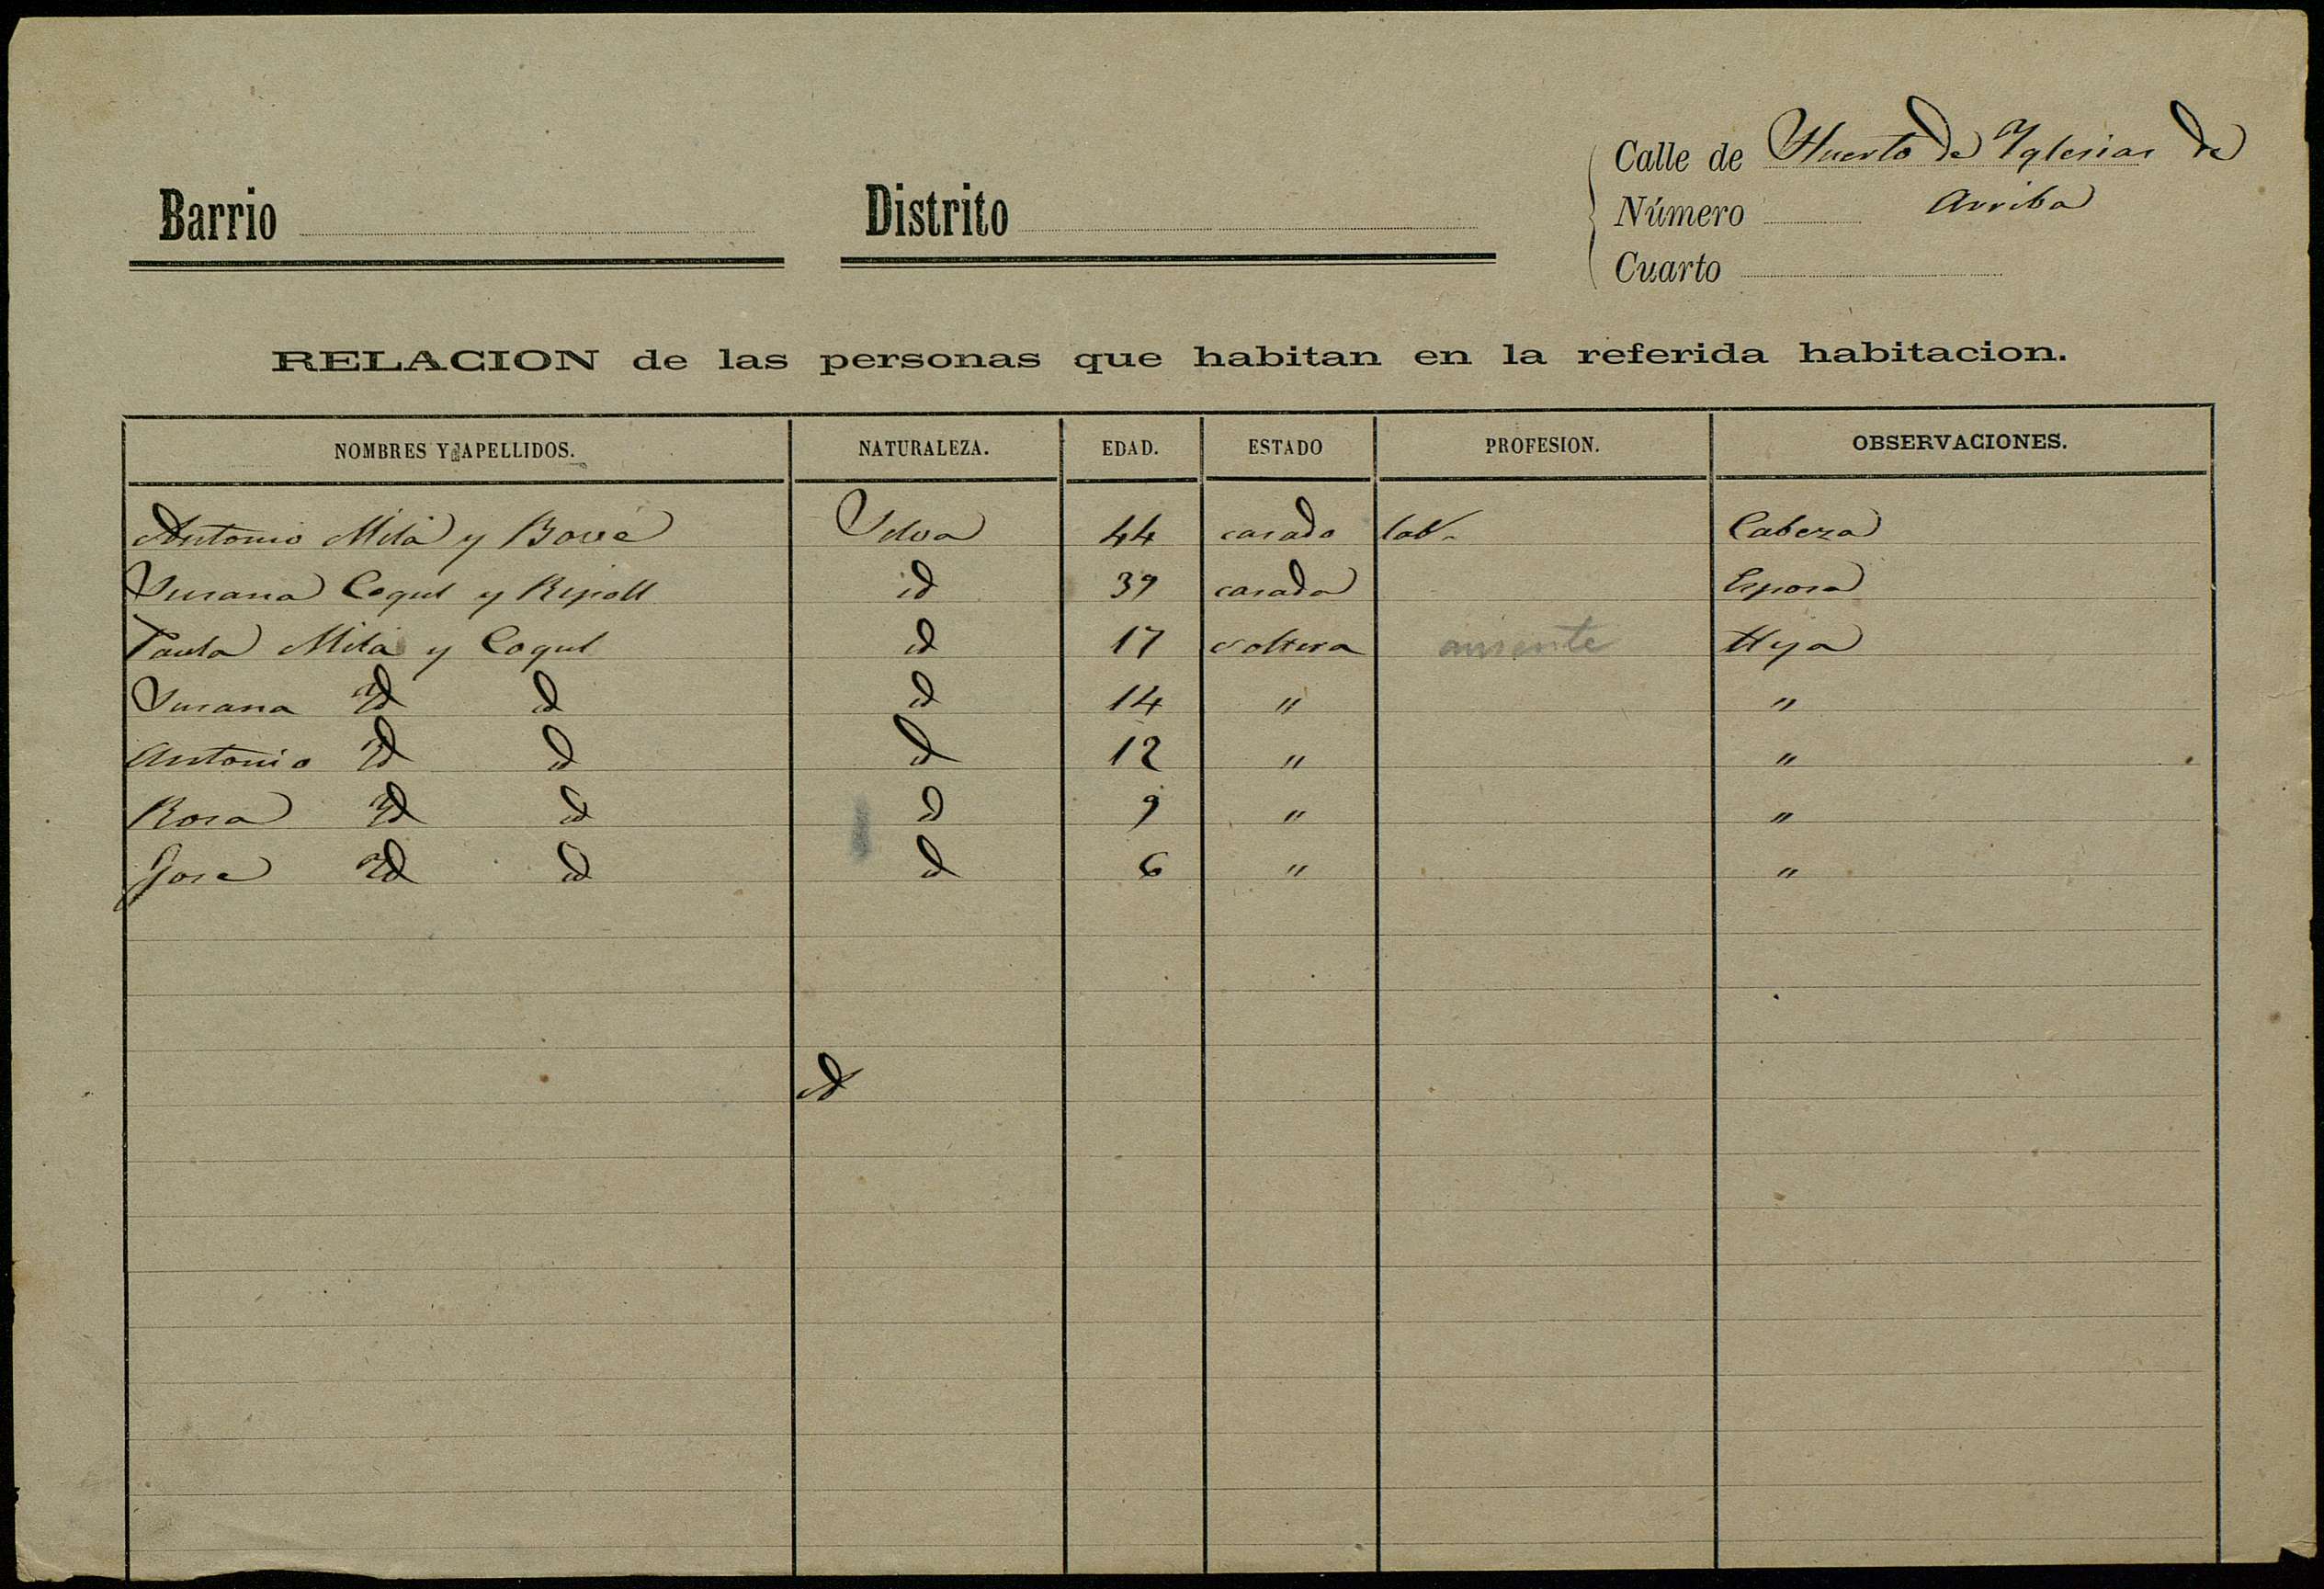 Calle de Huerto de Yglesias de
Barrio Distrito Número Arriba
Cuarto
RELACION de las personas que habitan en la referida habitacion.
NOMBRES Y APELLIDOS. NATURALEZA. EDAD. ESTADO PROFESION. OBSERVACIONES.
Antonio Milá y Bové Selva 44 casado lab.r Cabeza
Susana Cogul y Ripoll id 39 casada Esposa
Paula Milá y Cogul id 17 soltera ausente Hija
Susana Yd id id 14 " "
Antonio Yd id id 12 " "
Rosa Yd id id 9 " "
José Yd id id 6 " "
id